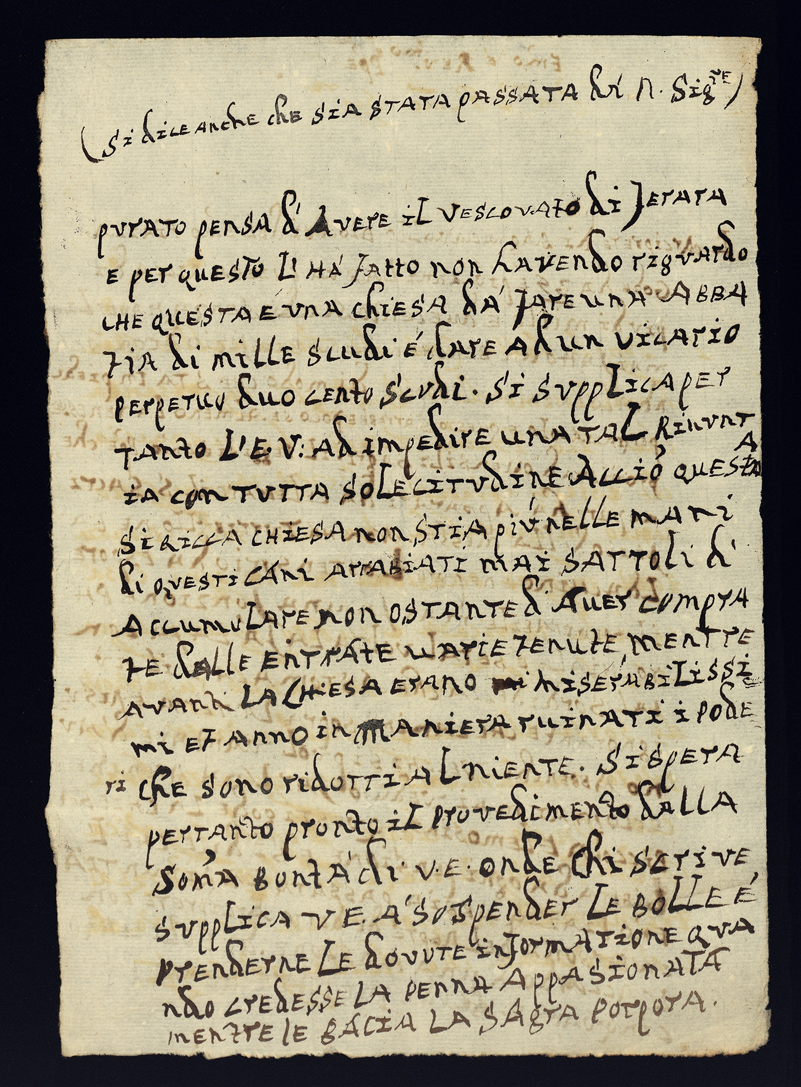 (Si dice anche che sia stata passata di N. Sig.re)
purato pensa d' Avere il vescovato di Jerara
e per questo l' há fatto non havendo riguardo
che questa é una chiesa dá fare una Abba
zia di mille scudi é dare ad un vicario
perpetuo duo cento scudi. Si supplica per
tanto L'E.V: ad impedire una tal Rinunt
ia con tutta solecitudine Acció questa
si ricca chiesa non stia piú nelle mani
di questi cani arrabiati mai sattoli di
Accumulare non ostante d' Aver compra
te dalle entrate uarie tenute, mentre
avanti la Chiesa erano miserabilissi
mi et anno in maniera ruinati i pode
ri che sono ridotti al niente. Si spera
pertanto pronto il provedimento dalla
Som̃a bontá di V.E. onde chi scrive
supplica V E. á sospender le bolle é
prenderne le dovute informatione qua
ndo credesse la penna appasionata
mentre le bacia la sagra porpora.